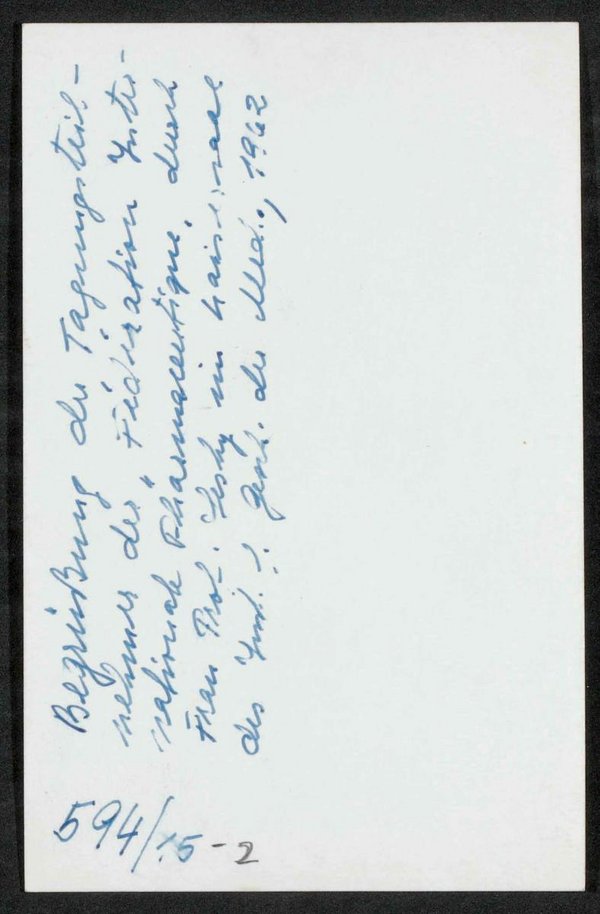 Begrüßung der Tagungsteil-
nehmer der „Fédération Inter-
nationale Pharmaceutique" durch
Frau Prof. Lesky im Kaisersaal
des Inst. f. Gesch. der Med., 1962
594/15-2